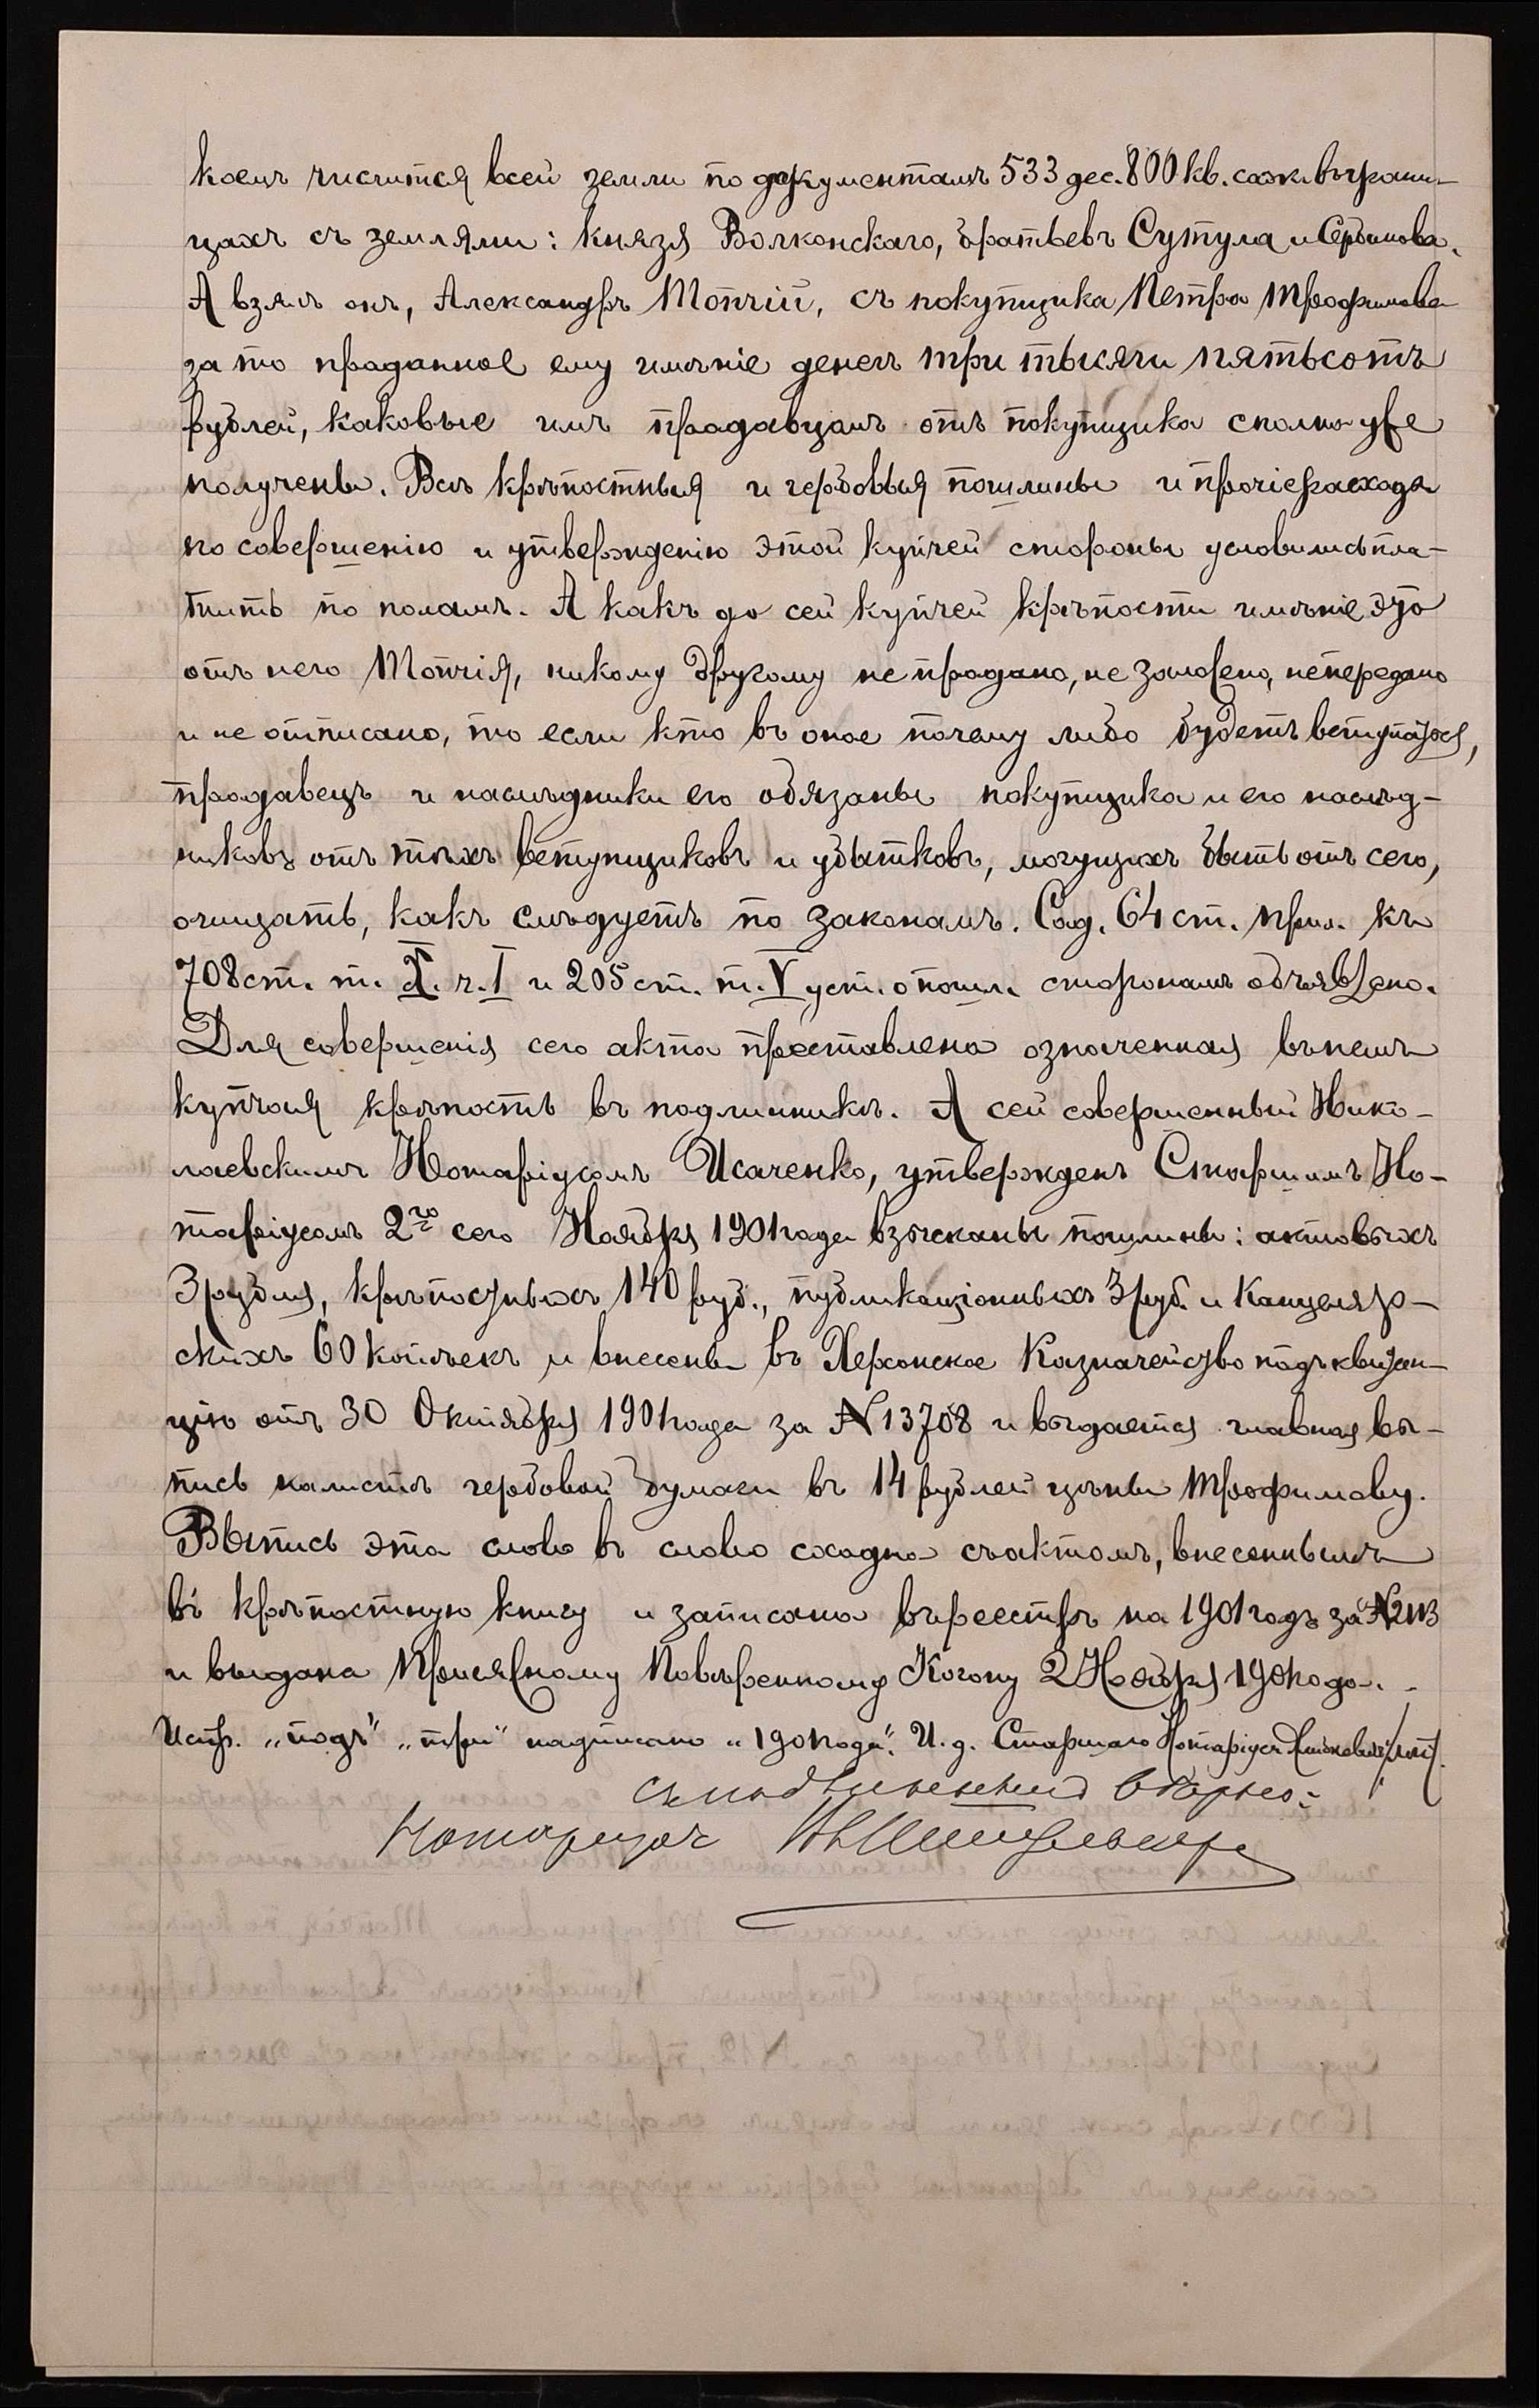 коемъ числится всей земли по документамъ 533 дес. 800 кв. саж. въ грани-
цахъ съ землями: Князя Волконскаго, братьевъ Сутула и Сербинова.
А взялъ онъ, Александръ Топчій, съ покупщика Петра Трофимова
за то проданное ему имѣніе денегъ три тысячи пятьсотъ
рублей, каковые имъ продавцомъ отъ покупщика сполна уже
получены. Всѣ крѣпостныя и гербовыя пошлины и прочіе расходы
по совершенію и утвержденію этой купчей стороны условились пла-
тить по поламъ. А какъ до сей купчей крѣпости имѣніе это
отъ него Топчія, никому другому не продано, не заложено, не передано
и не отписано, то если кто въ оное почему либо будетъ вступаться,
продавецъ и наслѣдники его обязаны покупщика и его наслѣд-
никовъ отъ тѣхъ вступщиковъ и убытковъ, могущихъ быть отъ сего,
очищать, какъ слѣдуетъ по законамъ. Сод. 64 ст. прил. къ
708 ст. т. X. ч. I и 205 ст. т. V уст. о пошл. сторонамъ объявлено.
Для совершенія сего акта преставлена означенная въ немъ
купчая крѣпость въ подлинникѣ. А сей совершенный Нико-
лаевскимъ Нотаріусомъ Исаченко, утвержденъ Старшимъ Но-
таріусомъ 2го сего Ноября 1901 года взысканы пошлины: актовыхъ
3 рубля, крѣпостныхъ 140 руб., публикаціонныхъ 3 руб. и Канцеляр-
скихъ 60 копѣекъ и внесены въ Херсонское Казначейство подъ квитан-
цію отъ 30 Октября 1901 года за № 13708 и выдается главная вы-
пись на листѣ гербовой бумаги въ 14 рублей цѣны Трофимову.
Выпись эта слово въ слово сходна съ актомъ, внесеннымъ
въ крѣпостную книгу и записана въ реестръ на 1901 годъ за №
и выдана Присяжному Повѣренному Когону 2 Ноября 1901 года.
Испр. „подъ" „три" надписано „1901 года". И. д. Старшаго Нотаріуса
съ подлиннымъ вѣрно:
Нотаріусъ